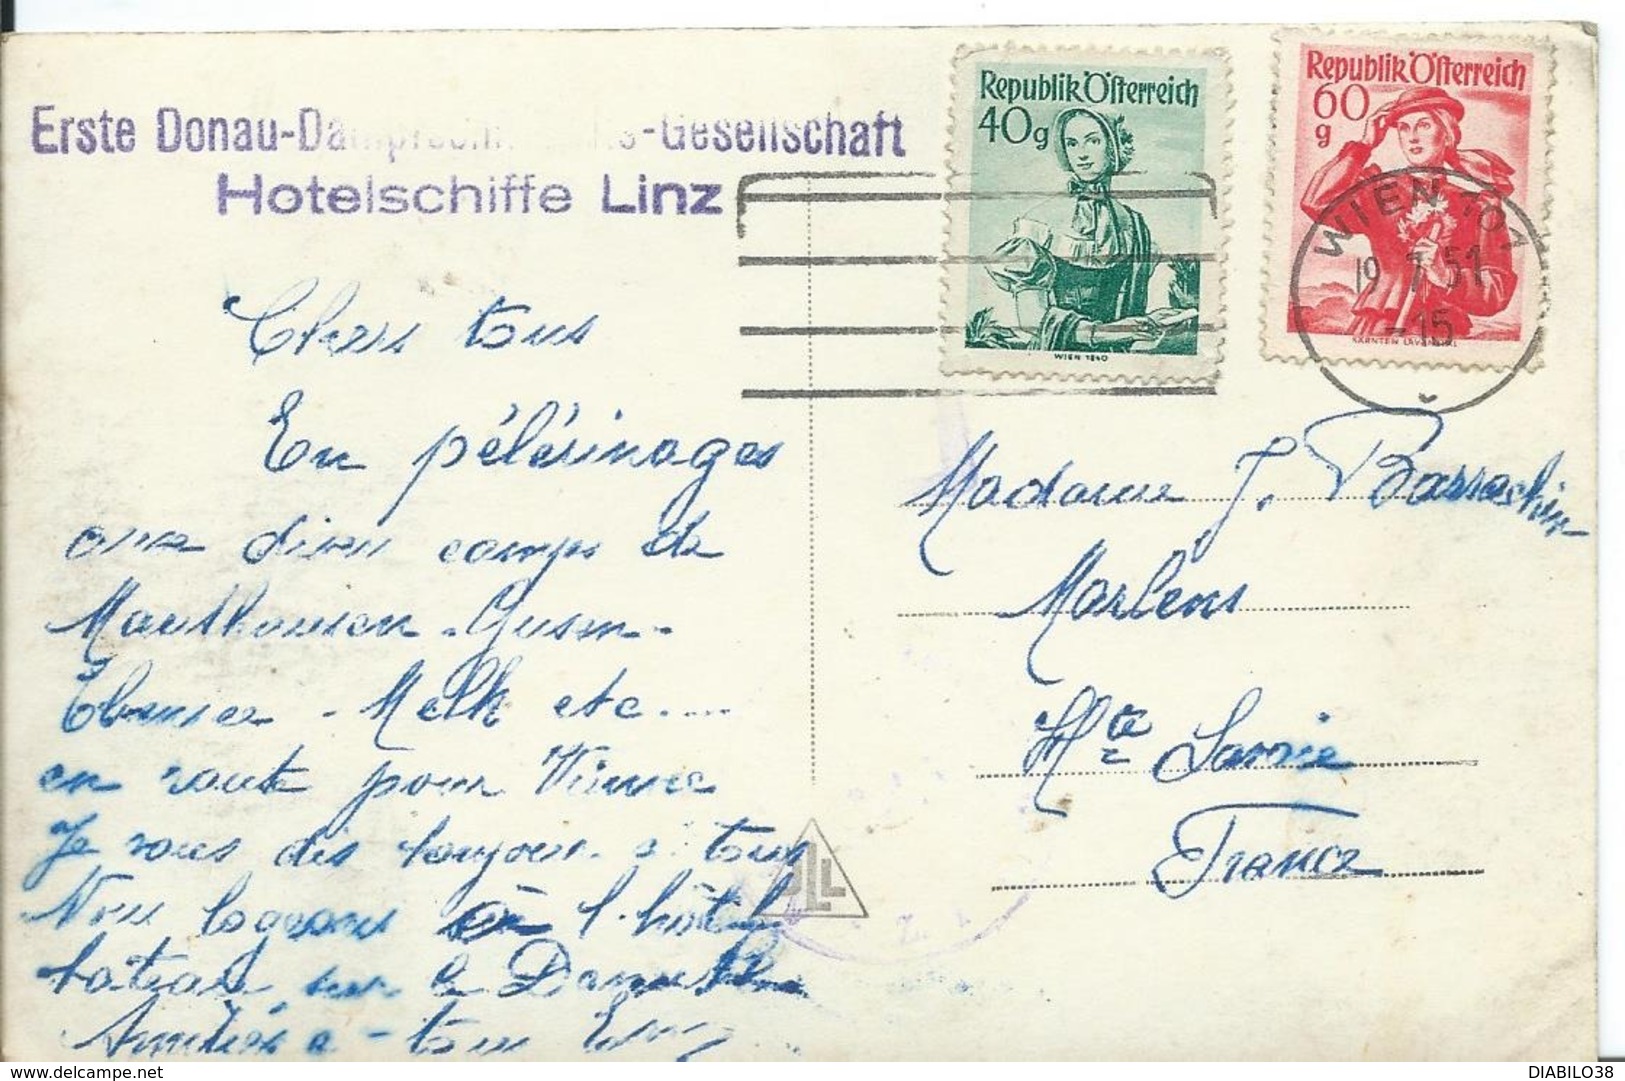 Erste Donau-Dampfschiffahrts-Gesellschaft
Hotelschiffe Linz
Republik Österreich
40g
WIEN 1840
Republik Österreich
60
g
KÄRNTEN LAVANTTAL
WIEN 101
19 7 51
-15
Chers tous
En pélérinages
aux divers camps de
Mauthausen - Gusen -
Ebensee - Melk etc....
en route pour Vienne
Je vous dis toujours à tous
Nous logeons à l'hôtel
bateau sur le Danube
Amitiés à tous
Madame J. Barrachin
Marlens
Hte Savoie
France
PLL
DIABILO38